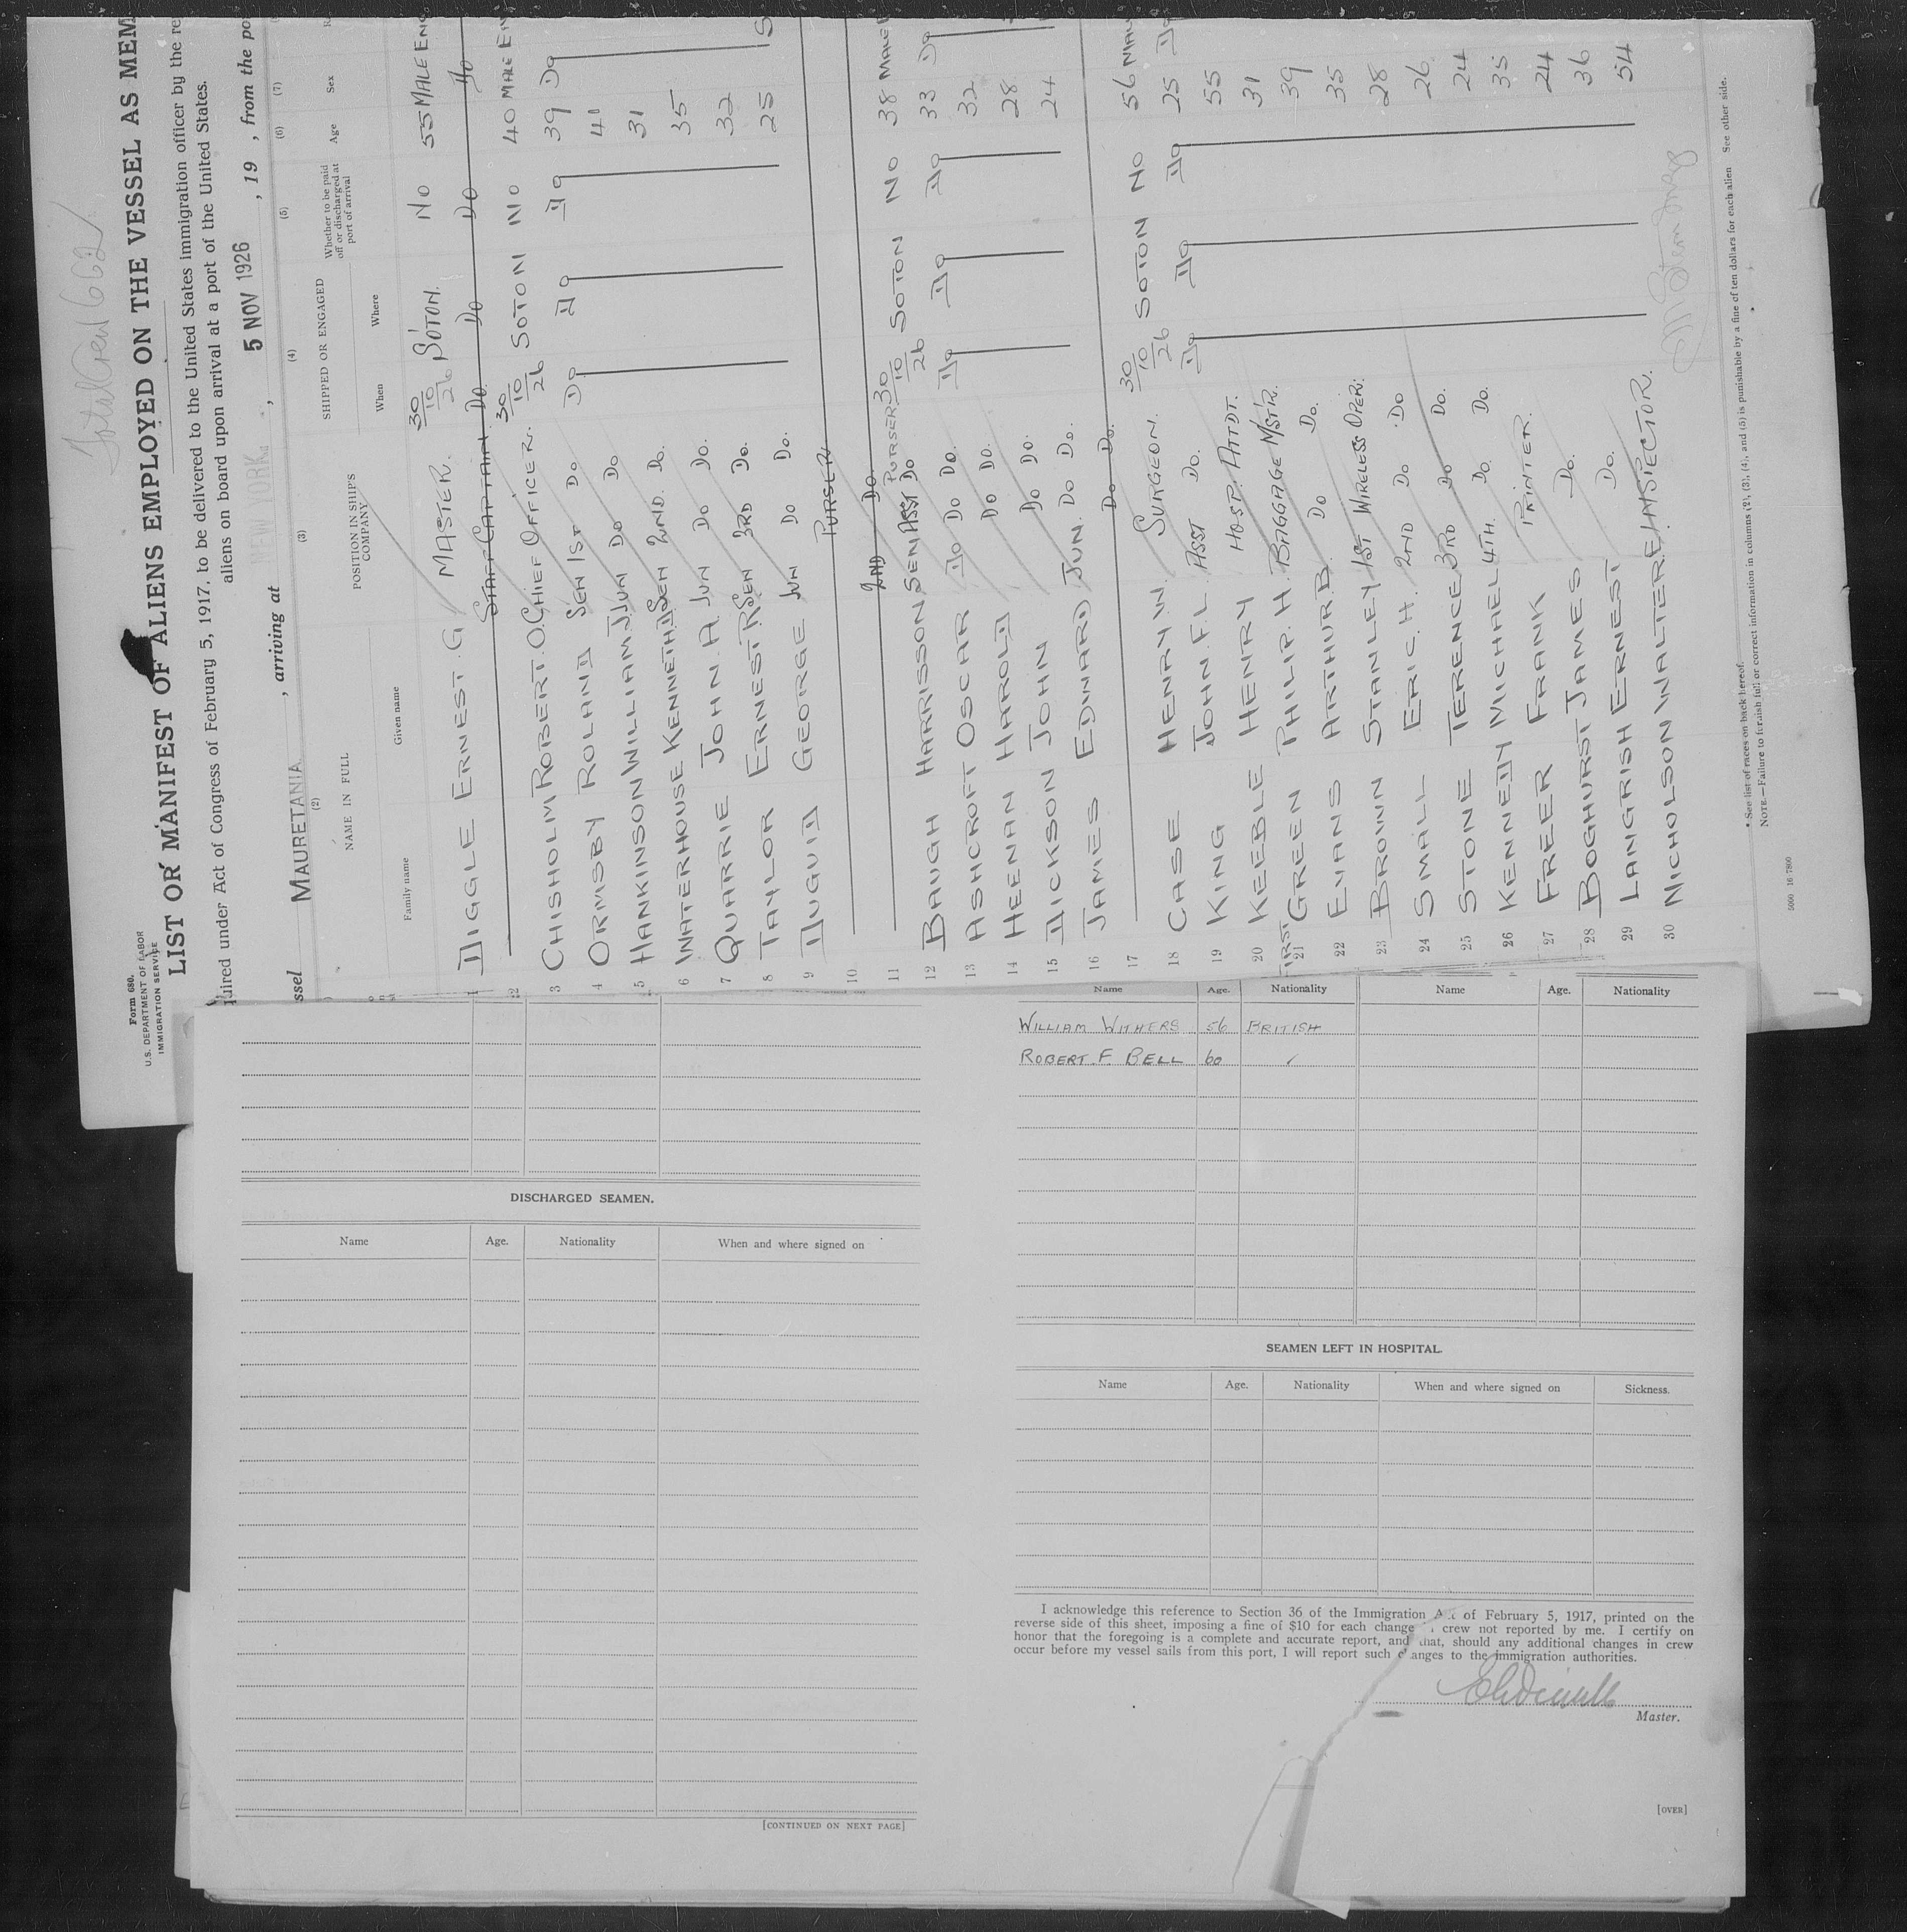 Total Crew 662
Form 680.
U.S. DEPARTMENT OF LABOR
IMMIGRATION SERVICE
LIST OR MANIFEST OF ALIENS EMPLOYED ON THE VESSEL AS MEM
quired under Act of Congress of February 5, 1917, to be delivered to the United States immigration officer by the re
aliens on board upon arrival at a port of the United States.
ssel MAURETANIA , arriving at NEW YORK , 5 NOV 1926 , 19 , from the po
(2) (3) (4) (5) (6) (7)
NAME IN FULL POSITION IN SHIP'S COMPANY SHIPPED OR ENGAGED Whether to be paid off or discharged at port of arrival Age Sex
Family name Given name When Where
1 DIGGLE ERNEST. G MASTER. 30/10/26 SOTON. NO 55 MALE ENG
2 STAFF CAPTAIN DO. DO DO DO
3 CHISHOLM ROBERT. O. CHIEF OFFICER. 30/10/26 SOTON NO 40 MALE EN
4 ORMSBY ROLAND SEN 1ST DO DO DO DO 39 DO
5 HANKINSON WILLIAM J JUN DO DO 41
6 WATERHOUSE KENNETH J SEN 2ND. DO. 31
7 QUARRIE JOHN. A. JUN DO DO. 35
8 TAYLOR ERNEST R SEN 3RD DO. 32
9 DUGUID GEORGE JUN DO DO. 25 S
10 PURSER
11 2ND DO.
12 BAUGH HARRISSON SEN ASST PURSER 30/10/26 SOTON NO 38 MALE
13 ASHCROFT OSCAR DO DO DO. DO DO DO 33 DO
14 HEENAN HAROLD DO DO. 32
15 DICKSON JOHN DO DO. 28
16 JAMES EDWARD JUN. DO DO. 24
17 DO DO.
18 CASE HENRY W. SURGEON. 30/10/26 SOTON NO 56 MALE
19 KING JOHN. F. L. ASST DO. DO DO DO 25 DO
20 KEEBLE HENRY HOSP. ATTDT. 55
21 GREEN PHILIP. H. BAGGAGE M/STR. 31
22 EVANS ARTHUR. B. DO DO. 39
23 BROWN STANLEY 1ST WIRELESS OPER: 35
24 SMALL ERIC. H. 2ND DO DO 28
25 STONE TERENCE 3RD DO DO. 26
26 KENNEDY MICHAEL 4TH. DO. DO. 24
27 FREER FRANK PRINTER. 35
28 BOGHURST JAMES DO. 24
29 LANGRISH ERNEST DO. 36
30 NICHOLSON WALTER E INSPECTOR. 54
* See list of races on back hereof.
NOTE.—Failure to furnish full or correct information in columns (2), (3), (4), and (5) is punishable by a fine of ten dollars for each alien See other side.
Name Age. Nationality Name Age. Nationality
WILLIAM WITHERS 56 BRITISH
ROBERT. F. BELL 60 ,
DISCHARGED SEAMEN.
Name Age. Nationality When and where signed on
[CONTINUED ON NEXT PAGE]
SEAMEN LEFT IN HOSPITAL.
Name Age. Nationality When and where signed on Sickness.
I acknowledge this reference to Section 36 of the Immigration Act of February 5, 1917, printed on the
reverse side of this sheet, imposing a fine of $10 for each change crew not reported by me. I certify on
honor that the foregoing is a complete and accurate report, and that, should any additional changes in crew
occur before my vessel sails from this port, I will report such changes to the immigration authorities.
Master.
[OVER]